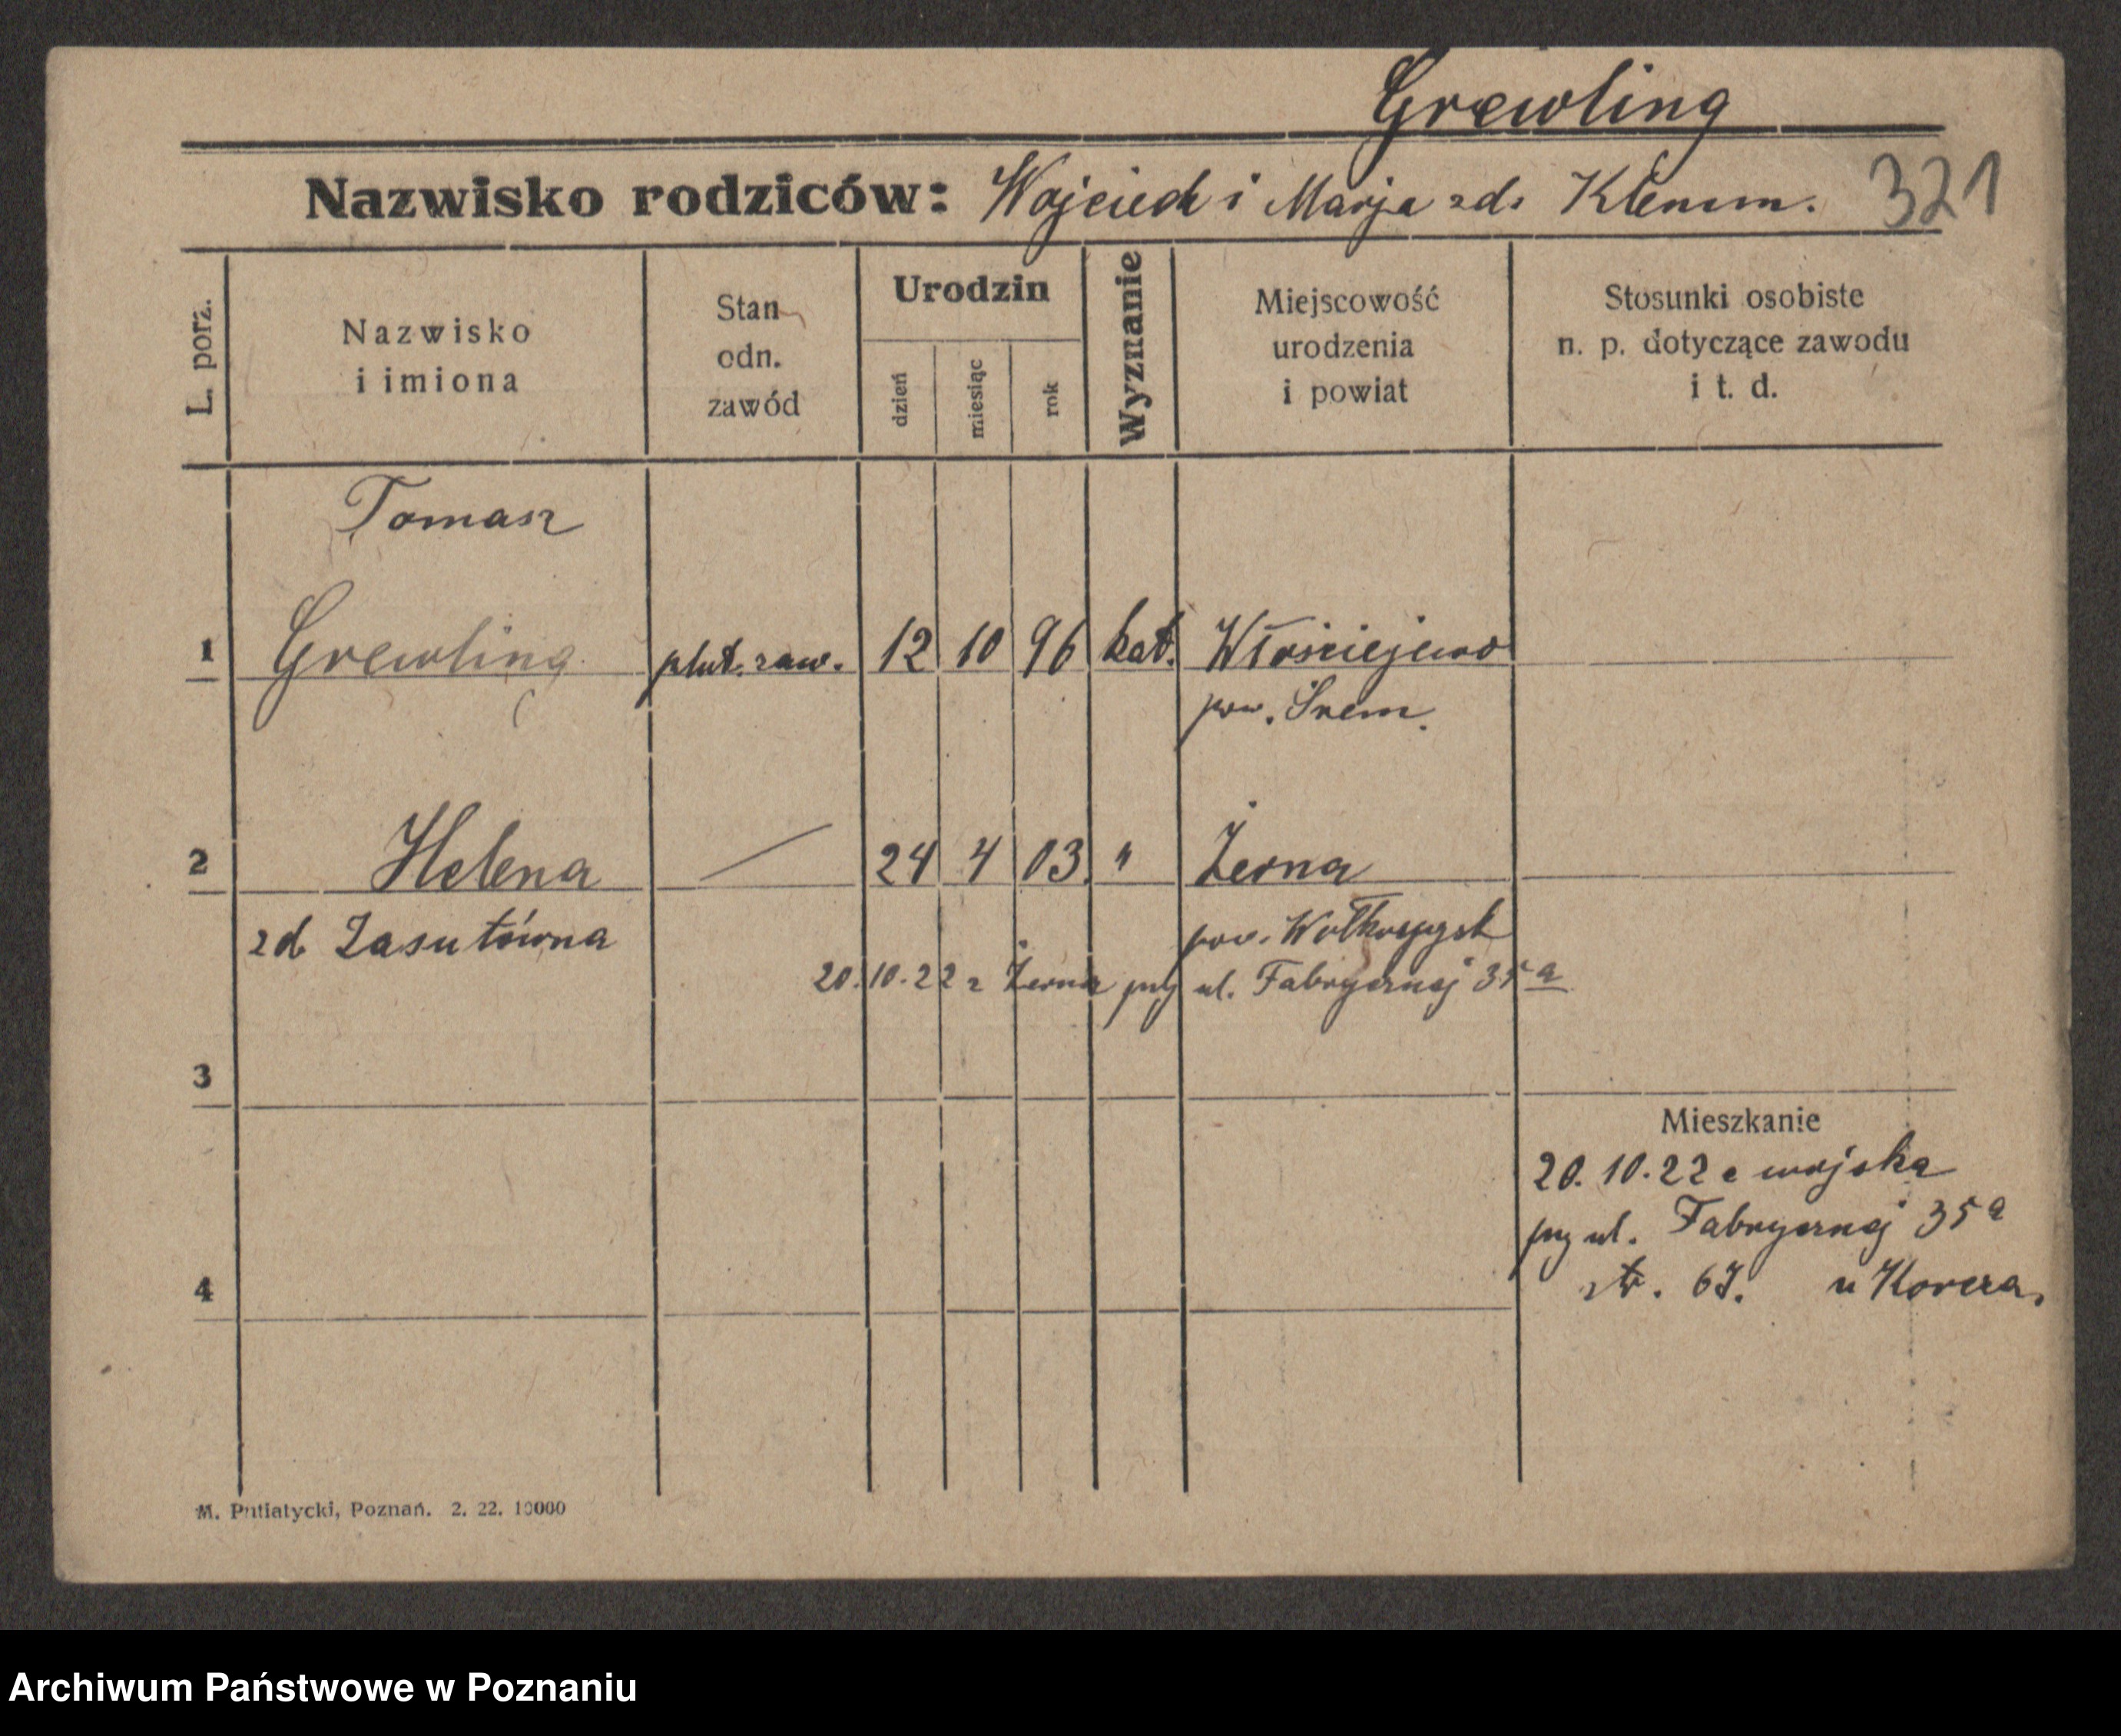 Grewling
Nazwisko rodziców: Wojciech i Marja zd. Klemm. 321
L. porz.
Nazwisko
i imiona
Stan
odn.
zawód
Urodzin
dzień
miesiąc
rok
Wyznanie
Miejscowość
urodzenia
i powiat
Stosunki osobiste
n. p. dotyczące zawodu
i t. d.
Tomasz
1 Grewling plut. zaw. 12 10 96 kat. Włościejewo
pow. Śrem.
2 Helena — 24 4 03. " Żerna
zd Zasutówna pow. Wołkowysk
20.10.22 z Żerna przy ul. Fabrycznej 35a
3
Mieszkanie
20. 10. 22 z wojska
przy ul. Fabrycznej 35a
4 str. 67. u
M. Putiatycki, Poznań. 2. 22. 10000
Archiwum Państwowe w Poznaniu